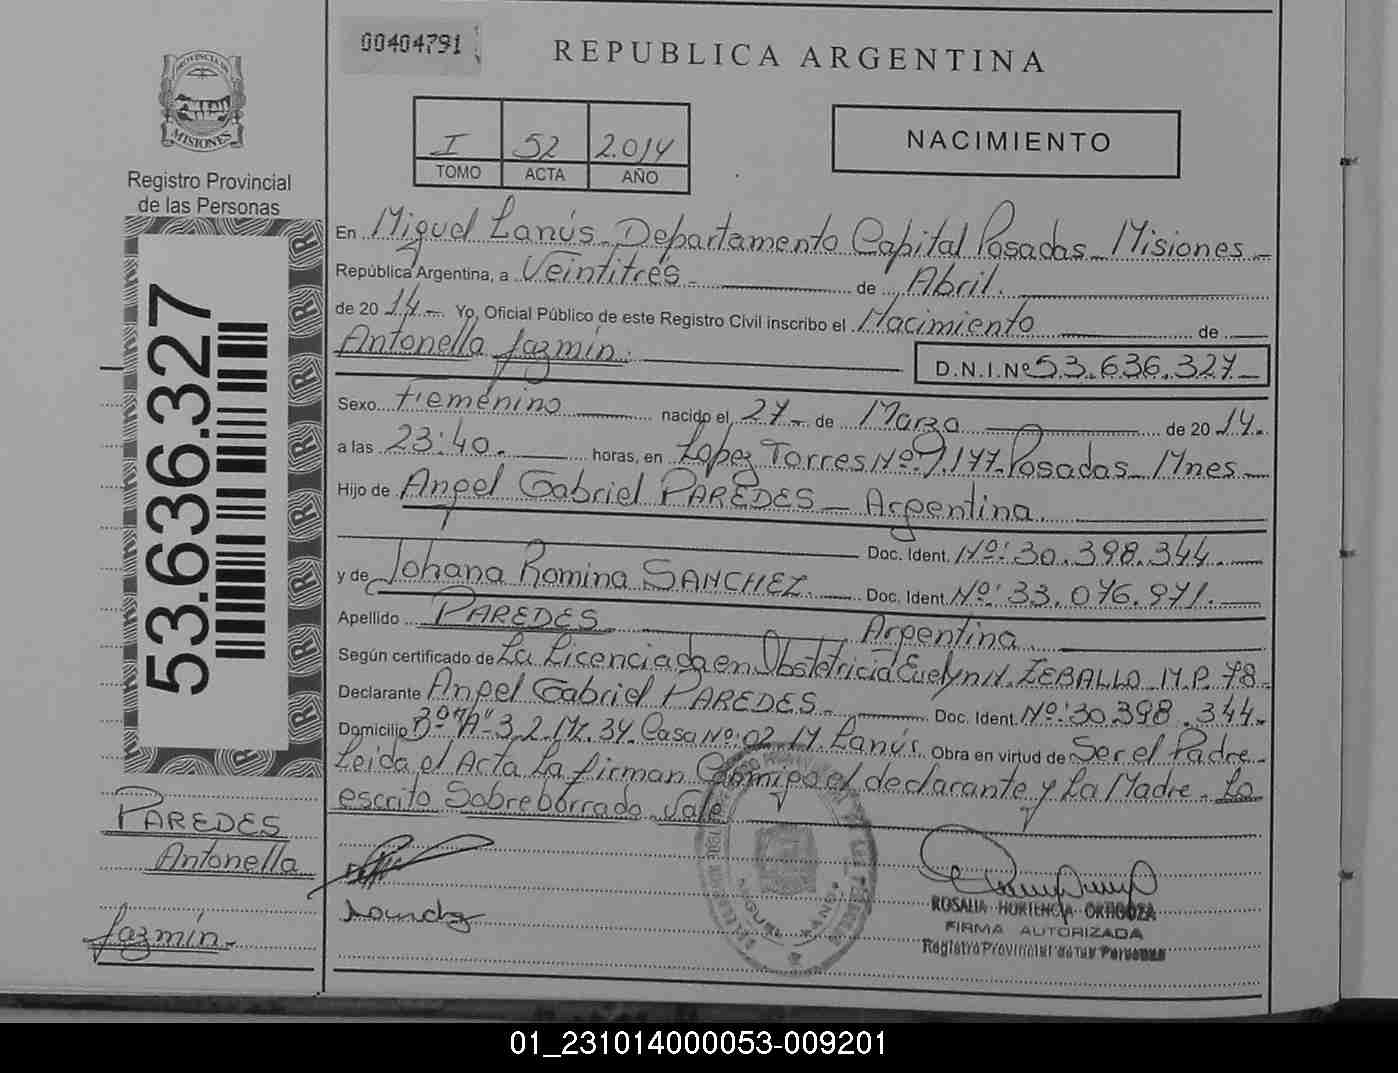 00404791
REPUBLICA ARGENTINA
PROVINCIA DE
MISIONES
Registro Provincial
de las Personas
I 52 2.014
TOMO ACTA AÑO
NACIMIENTO
53.636.327
En Miguel Lanús - Departamento Capital Posadas - Misiones -
República Argentina, a Veintitrés - de Abril.
de 20 14 - Yo, Oficial Público de este Registro Civil inscribo el Nacimiento de
Antonella Jazmín.
D.N.I.Nº 53.636.327 -
Sexo Femenino nacido el 27 - de Marzo de 20 14.
a las 23:40. horas, en López Torres Nº 9.177 - Posadas - Mnes -
Hijo de Angel Gabriel PAREDES - Argentina.
Doc. Ident. Nº: 30.398.344.
y de Johana Romina SANCHEZ. Doc. Ident. Nº: 33.076.971.
Apellido PAREDES Argentina.
Según certificado de La Licenciada en Obstetricia Evelyn N. ZEBALLO - M.P. 78 -
Declarante Angel Gabriel PAREDES - Doc. Ident. Nº: 30.398.344 -
Domicilio Bº "A" 3.2 Mz. 34. Casa Nº: 02 M. Lanús. Obra en virtud de Ser el Padre -
Leida el Acta La firman Conmigo el declarante y La Madre - Lo
escrito Sobreborrado - Vale
PAREDES
Antonella
Jazmín -
MIGUEL LANUS
ROSALIA HORTENCIA ORTIGOZA
FIRMA AUTORIZADA
Registro Provincial de las Personas
01_231014000053-009201